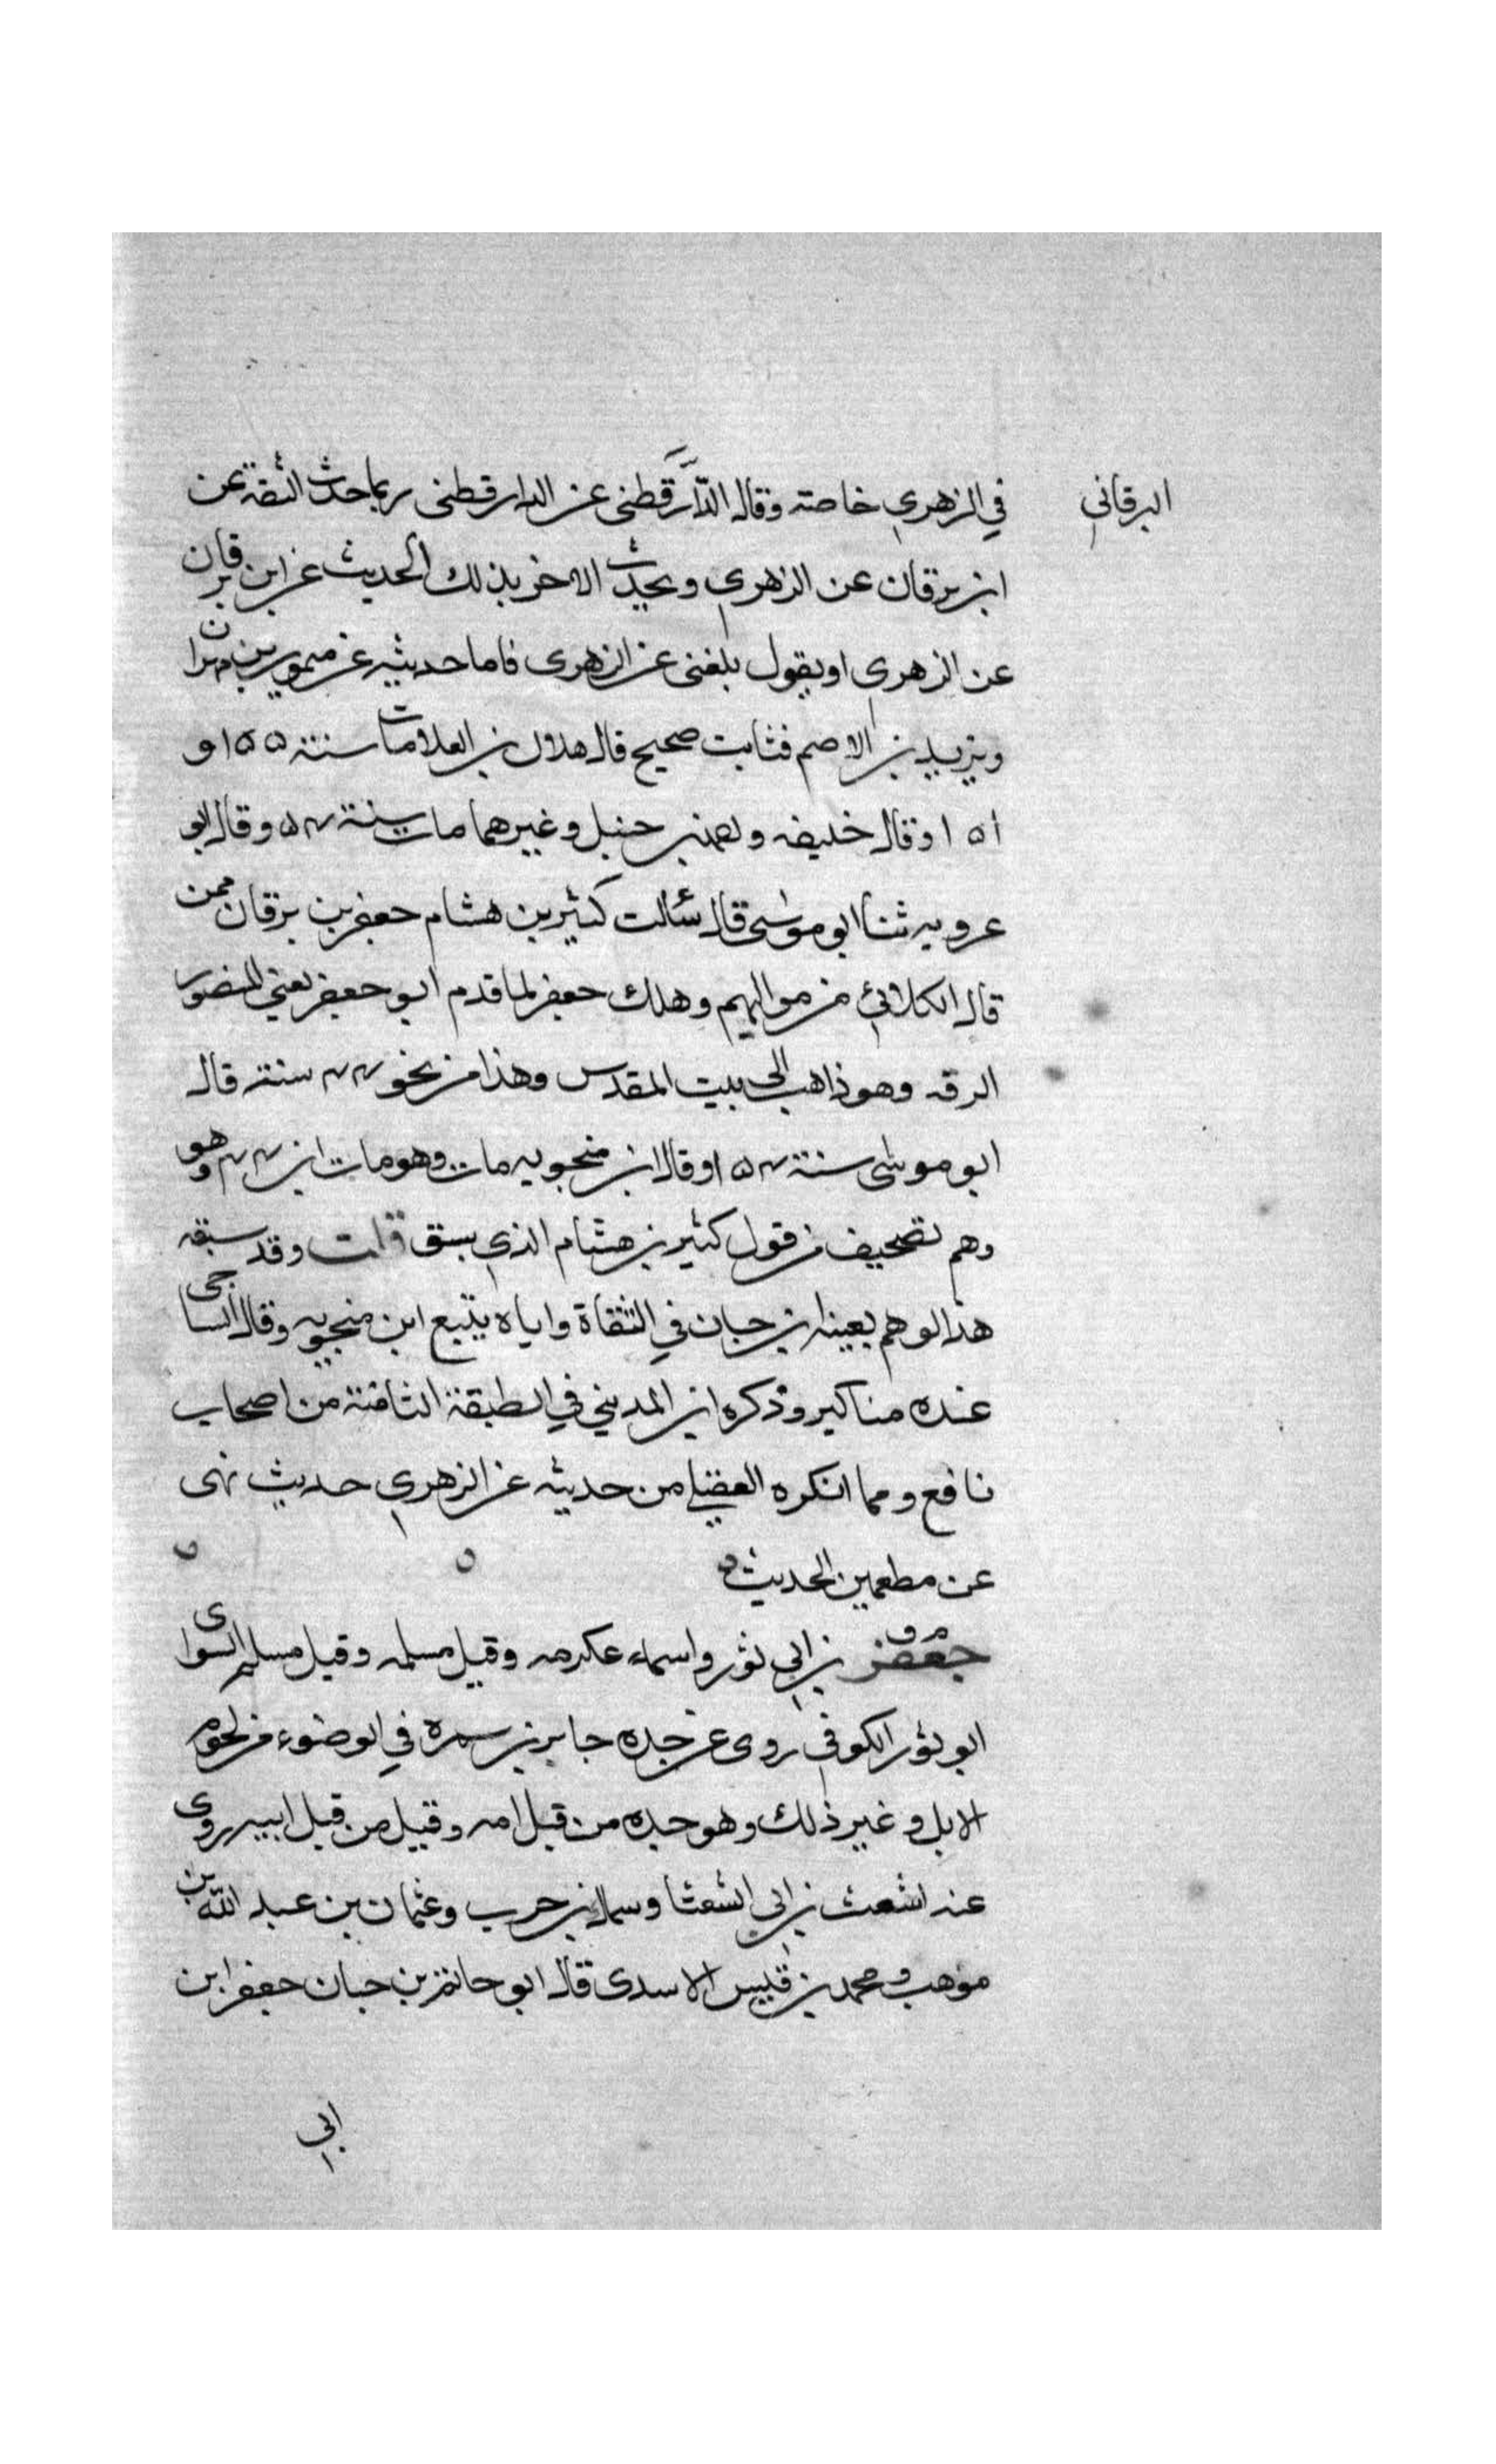 البرقاني
في الزهري خاصته وقال الدَّارقطنى عن الدارقطنى ربما حدث الثقة عن
ابن برقان عن الزهري ويحدث الاخر بذلك الحديث عن ابن برقان
عن الزهري او يقول بلغنى عن الزهرى فاما حديثه عن ميمون بن مهران
ويزيد بن الاصم فثابت صحيح قال هلال بن العلا مات سنة ١٥٥ و
١٥١ وقال خليفه واحمد بن حنبل وغيرهما مات سنة ٥٤ وقال ابو
عروبه ثنا ابو موسى قال سئالت كثير بن هشام جعفر بن برقان ممن
قال الكلابي من مواليهم وهلك جعفر لما قدم ابو جعفر يعني المنصور
الرقه وهو ذاهب الى بيت المقدس وهذا من نحو ٤٤ سنة قال
ابو موسى سنة ١٥٤ وقال ابن منجويه مات وهو مات ابن ٤٤ وهو
وهم تصحيف من قول كثير بن هشام الذي سبق قلت وقد سبقه
هذا الوهم بعينه ابن حبان في الثقاة واياه يتبع ابن منجويه وقال الساجى
عنده مناكير وذكره ابن المديني في الطبقة الثامنة من اصحاب
نافع ومما انكره العقيلي من حديثه عن الزهري حديث نهى
عن مطعمين الحديث
جعفر بن ابي ثور واسمه عكرمه وقيل مسلمه وقيل مسلم السواى
ابو ثور الكوفي روى عن جده جابر بن سمره في الوضوء من لحوم
الابل وغير ذلك وهو جده من قبل امه وقيل من قبل ابيه روى
عنه اشعث بن ابي الشعثا وسماك بن حرب وعثمان بن عبد الله بن
موهب ومحمد بن قيس الاسدى قال ابو حاتم بن حبان جعفر ابن
ابي